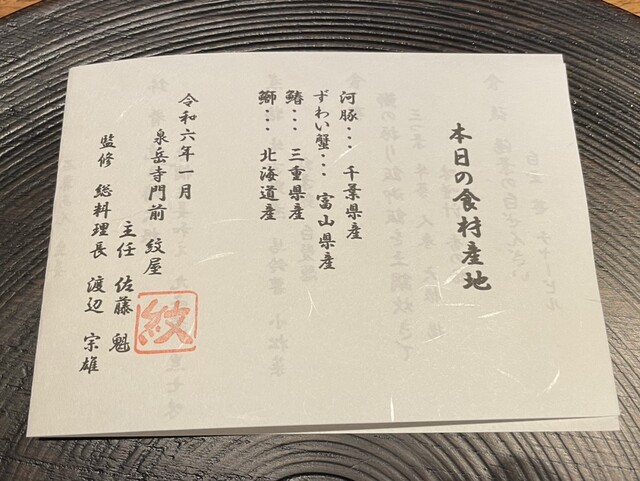 本日の食材産地
河豚・・・ 千葉県産
ずわい蟹・・・ 富山県産
鰆・・・ 三重県産
鰤・・・ 北海道産
令和六年一月
泉岳寺門前 紋屋
主任 佐藤 魁
監修 総料理長 渡辺 宗雄
紋